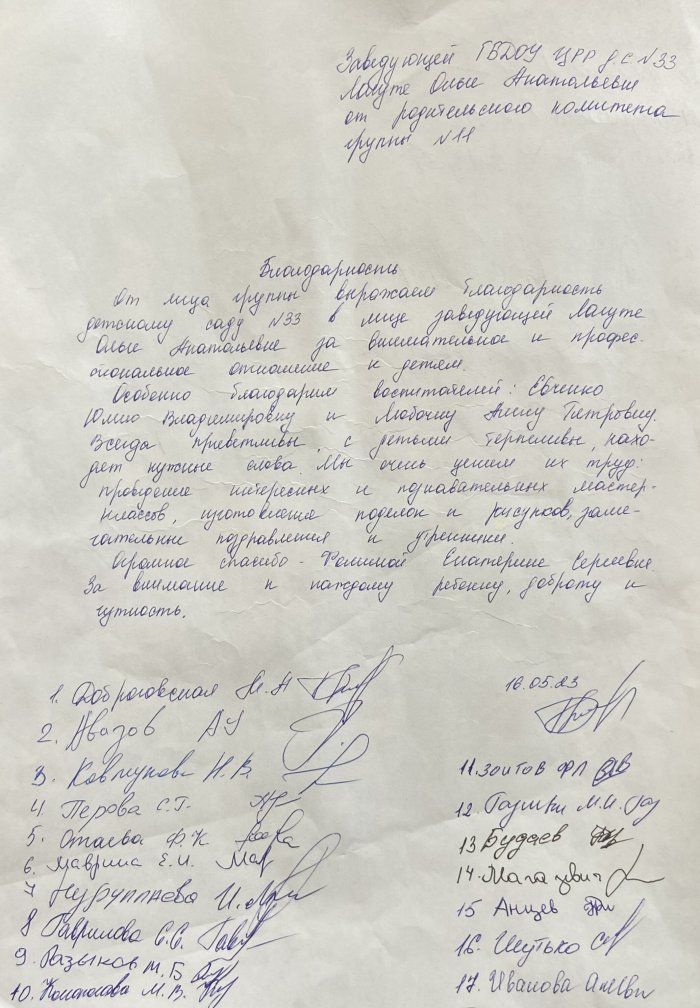 Заведующей ГБДОУ ЦРР д.с N33
Лагуте Ольге Анатольевне
от родительского комитета
группы N11
Благодарность
От лица группы выражаем благодарность
детскому саду N33 в лице заведующей Лагуте
Ольге Анатольевне за внимательное и профес-
сиональное отношение к детям.
Особенно благодарим воспитателей: Евченко
Юлию Владимировну и Любочку Анну Петровну.
Всегда приветливы, с детьми терпеливы, нахо-
дят нужные слова. Мы очень ценим их труд:
проведение интересных и познавательных мастер-
классов, изготовление поделок и рисунков, заме-
чательные поздравления и утренники.
Огромное спасибо - Фоминой Екатерине Сергеевне
За внимание к каждому ребенку, доброту и
чуткость.
1. Доброговская Н.Н
2. Авазов АУ
3. Ковтунова Н.В.
4 Перова С.Г.
5. Отаева Ф.К
6. Маврина Е.И.
7 И.
8 Гаврилова С.С.
9. Разыков М.Б
10. М.В.
16.05.23
11. Зоитов ФЛ
12. М.И.
13 Будаев
14. Магазевич
15 Анцев
16. Шутько
17. Иванова